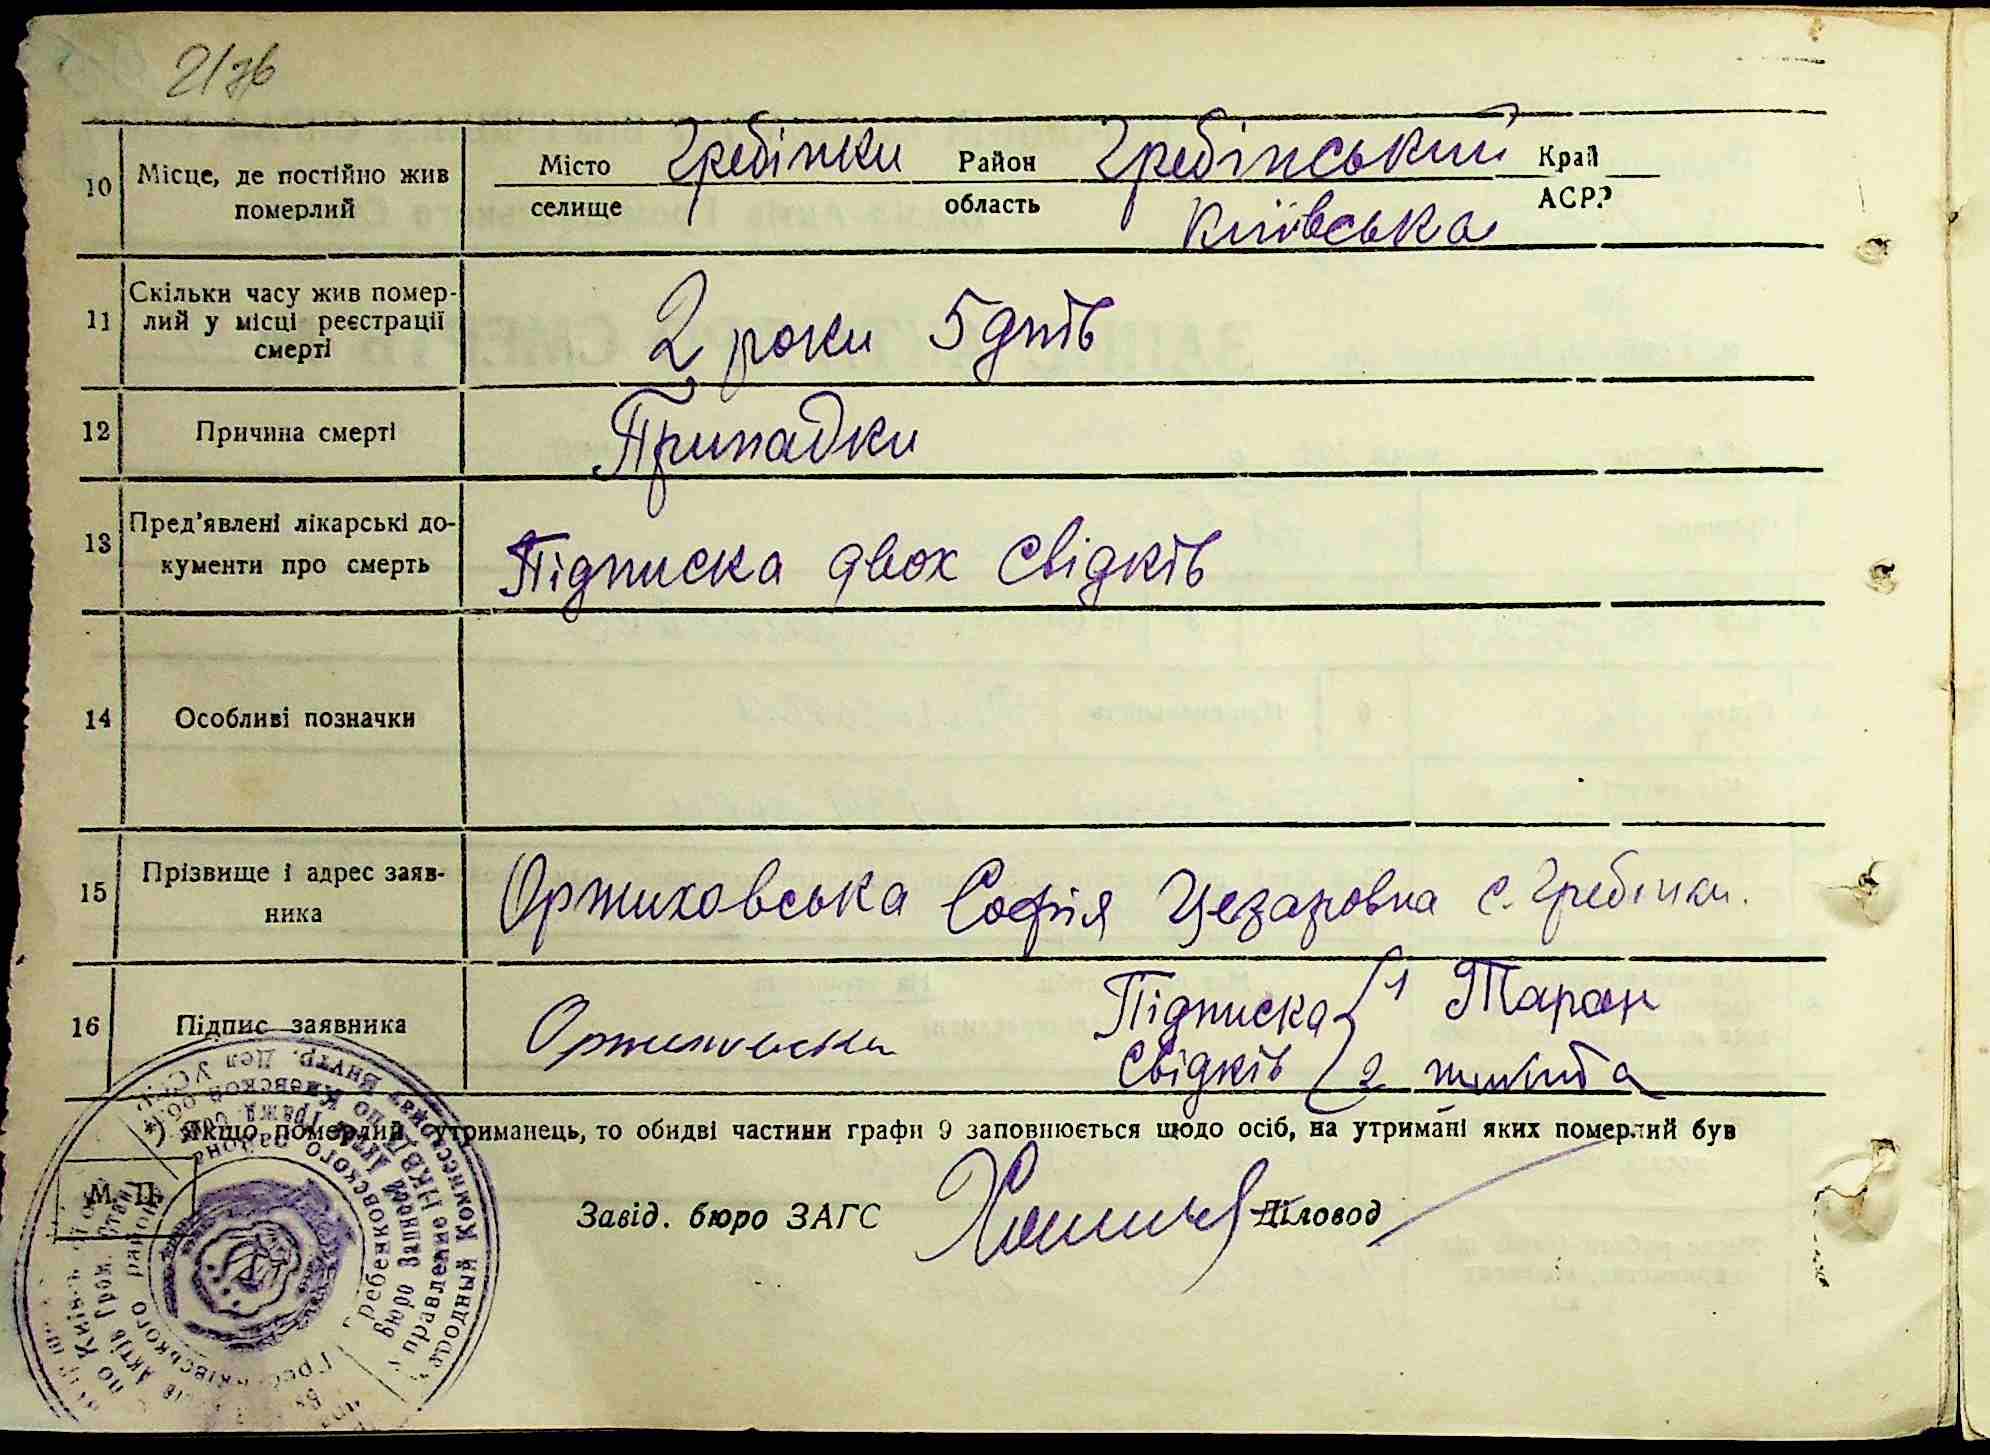 21зв
10 Місце, де постійно жив Місто Гребінки Район Гребінський Край
померлий селище область Київська АСРР
11 Скільки часу жив помер-
лий у місці реєстрації
смерті
2 роки 5 днів
12 Причина смерті Припадки
13 Пред'явлені лікарські до-
кументи про смерть
Підписка двох свідків
14 Особливі позначки
15 Прізвище і адрес заяв-
ника
Оржиховська Софія Цезаровна с. Гребінки.
16 Підпис заявника Оржиховська Підписка 1 Таран
Свідків 2
Якщо померлий утриманець, то обидві частини графи 9 заповнюється щодо осіб, на утримані яких померлий був
М. П.
Завід. бюро ЗАГС Діловод
Народный Комиссариат Внутр. Дел УССР
Управление НКВД по Киевской обл.
Бюро Записей Актов Гражд. Сост.
Гребенковского района